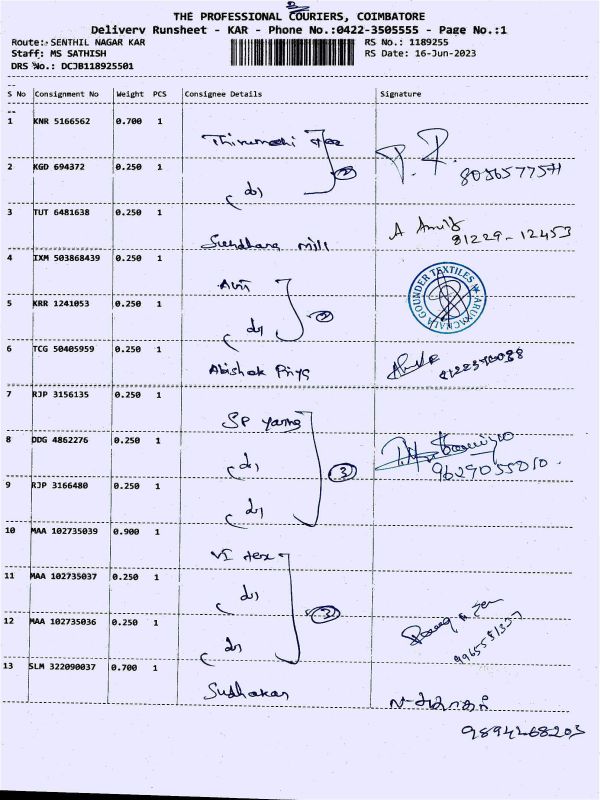 THE PROFESSIONAL COURIERS, COIMBATORE
Delivery Runsheet - KAR - Phone No.:0422-3505555 - Page No.:1
Route: SENTHIL NAGAR KAR RS No.: 1189255
Staff: MS SATHISH RS Date: 16-Jun-2023
DRS No.: DCJB118925501
S No Consignment No Weight PCS Consignee Details Signature
1 KNR 5166562 0.700 1
2 KGD 694372 0.250 1 (do) 2
3 TUT 6481638 0.250 1 mill
81229-12453
4 IXM 503868439 0.250 1
ARUNACHALA GOUNDER TEXTILES
5 KRR 1241053 0.250 1 (do) 2
6 TCG 50405959 0.250 1 Abishek Priya
7 RJP 3156135 0.250 1 SP yarns
8 DDG 4862276 0.250 1 (do) 3
9629055010
9 RJP 3166480 0.250 1 (do)
10 MAA 102735039 0.900 1 VI tex
11 MAA 102735037 0.250 1 (do)
12 MAA 102735036 0.250 1 (do) 3
13 SLM 322090037 0.700 1 Sudhakar
9894268203